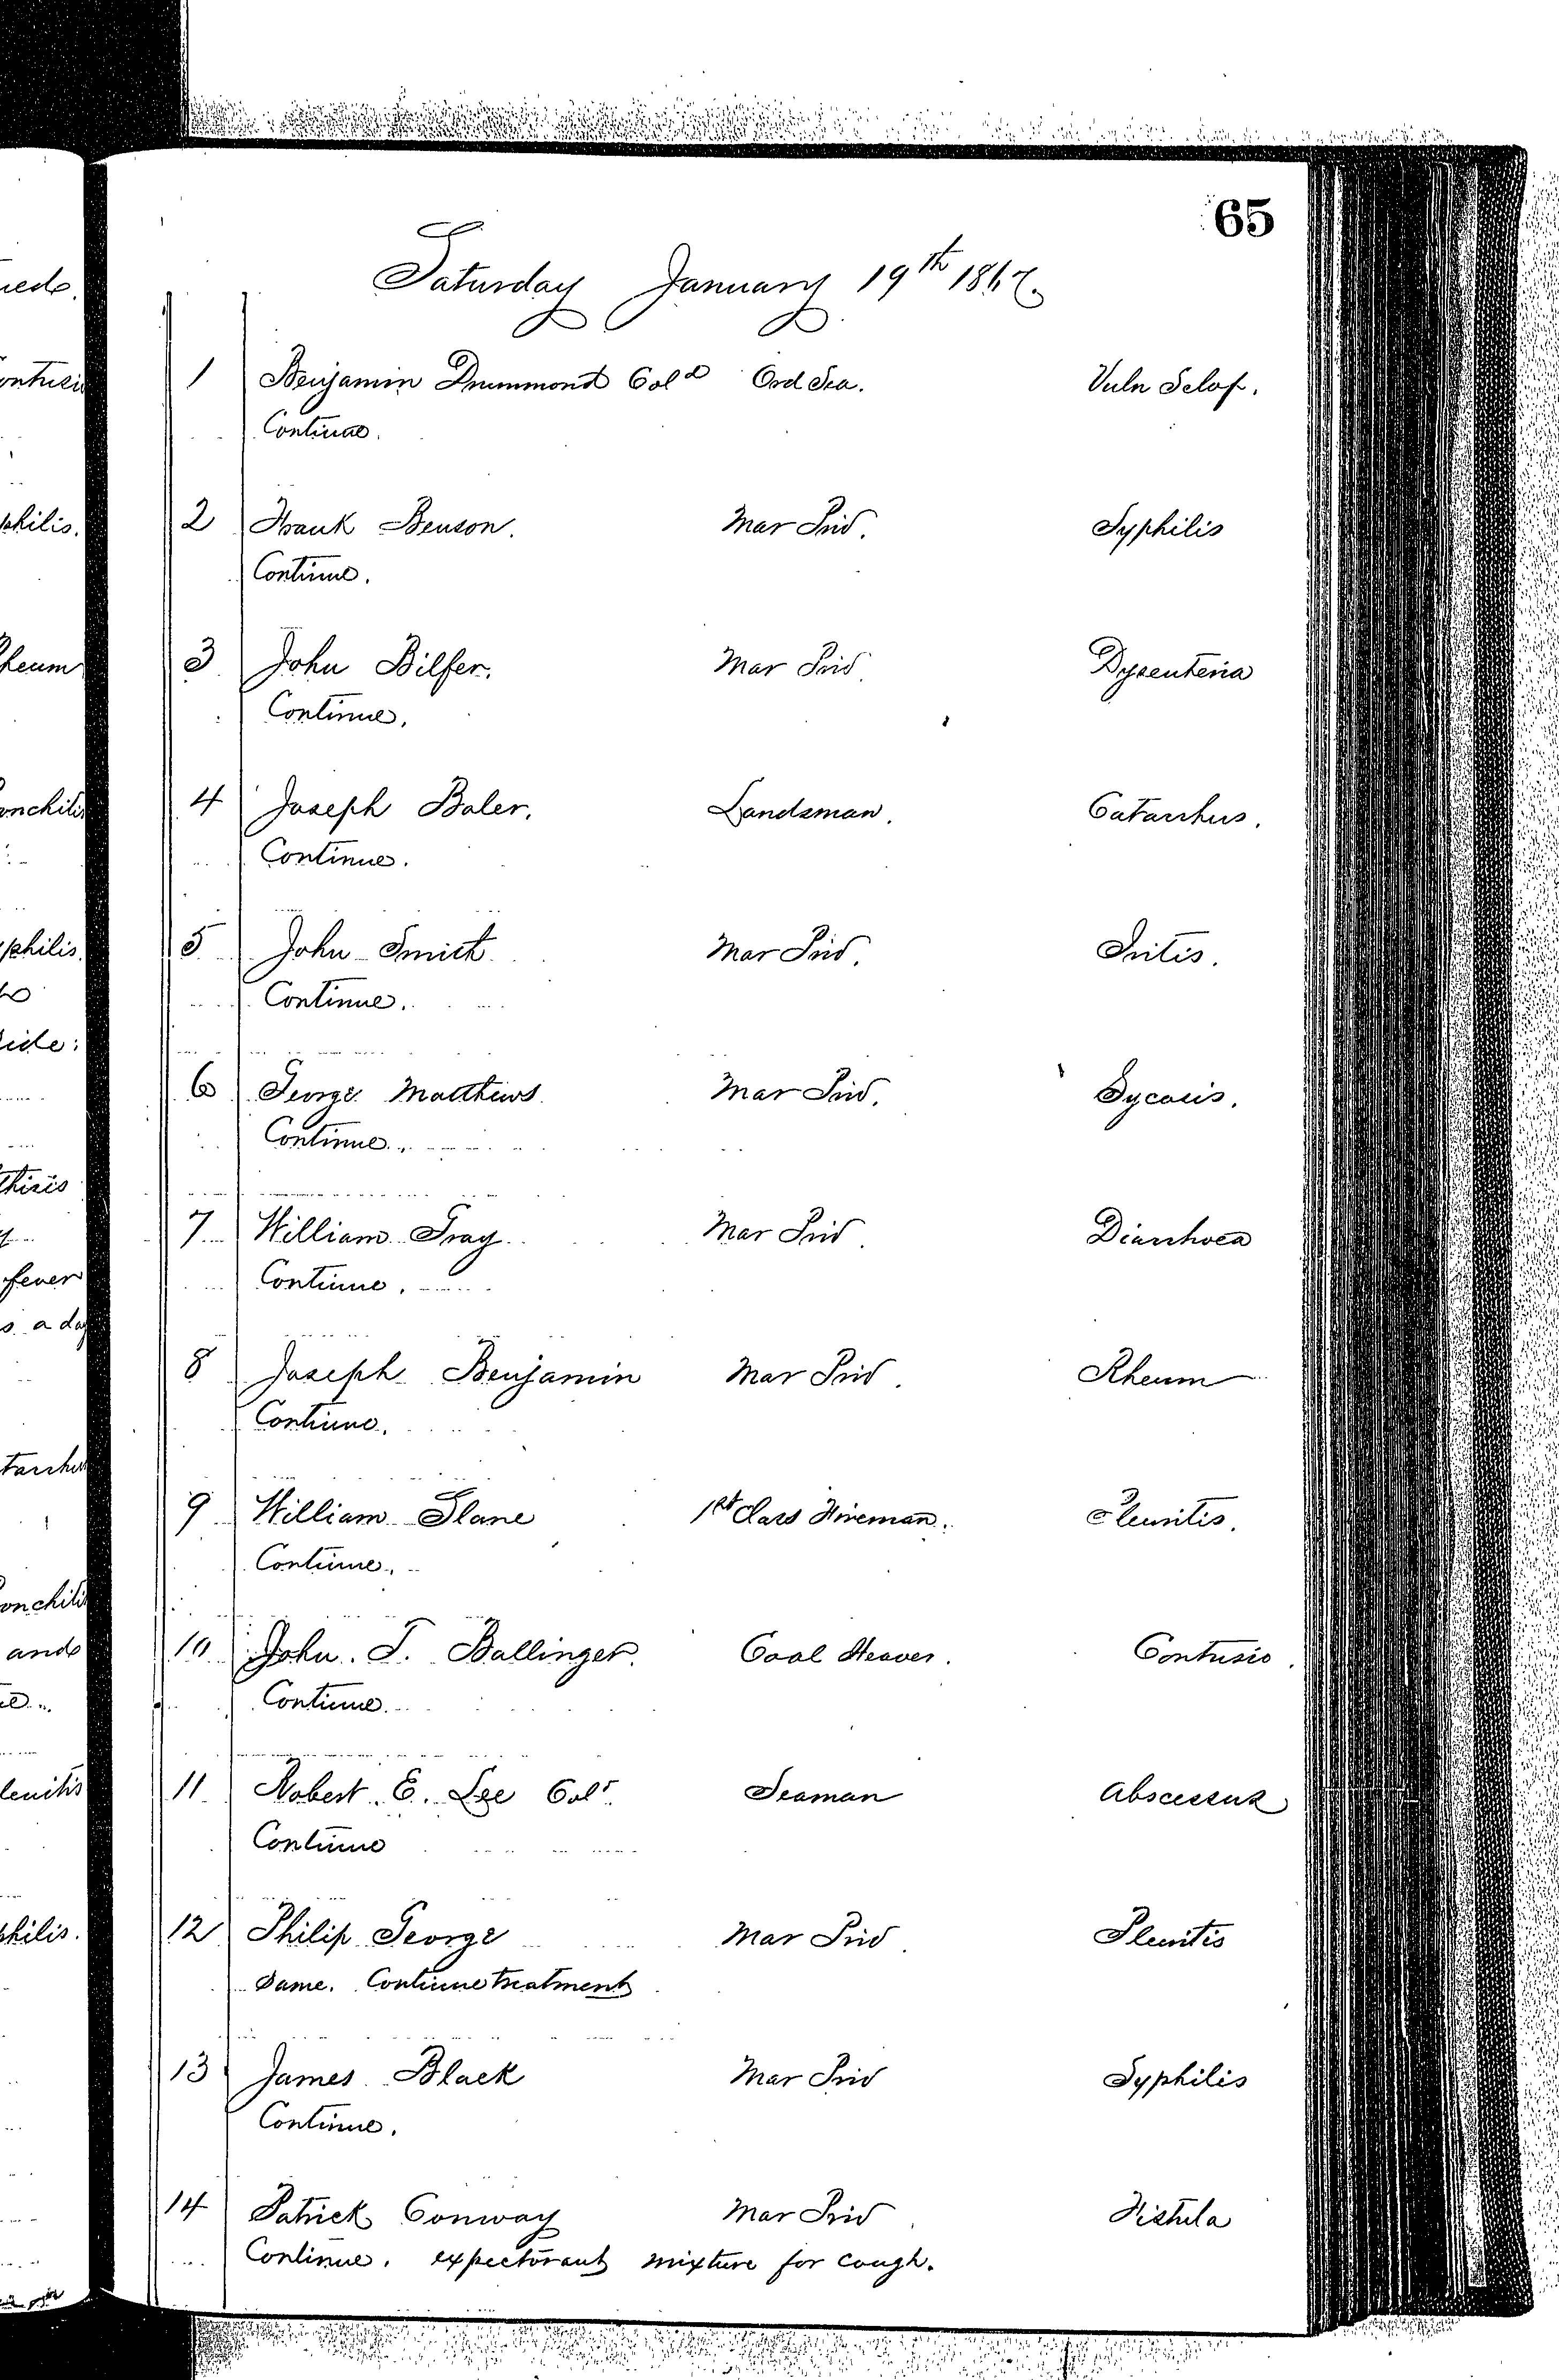 65
Saturday January 19th 1867.
1 Benjamin Drummond Cold Ord Sea. Vuln Sclop.
Continue.
2 Frank Benson. Mar Priv. Syphilis
Continue.
3 John Bilfer. Mar Priv. Dysenteria
Continue.
4 Joseph Boler. Landsman. Catarrhus.
Continue.
5 John Smith Mar Priv. Iritis.
Continue.
6 George Matthews Mar Priv. Sycosis.
Continue.
7 William Gray Mar Priv. Diarrhoea
Continue.
8 Joseph Benjamin Mar Priv. Rheum
Continue.
9 William Slane 1st Class Fireman. Pleuritis.
Continue.
10 John. T. Ballinger. Coal Heaver. Contusio.
Continue.
11 Robert. E. Lee Cold. Seaman Abscessus
Continue
12 Philip George Mar Priv. Pleuritis
Same. Continue treatment
13 James Black Mar Priv Syphilis
Continue.
14 Patrick Conway Mar Priv. Fistula
Continue. expectorant mixture for cough.